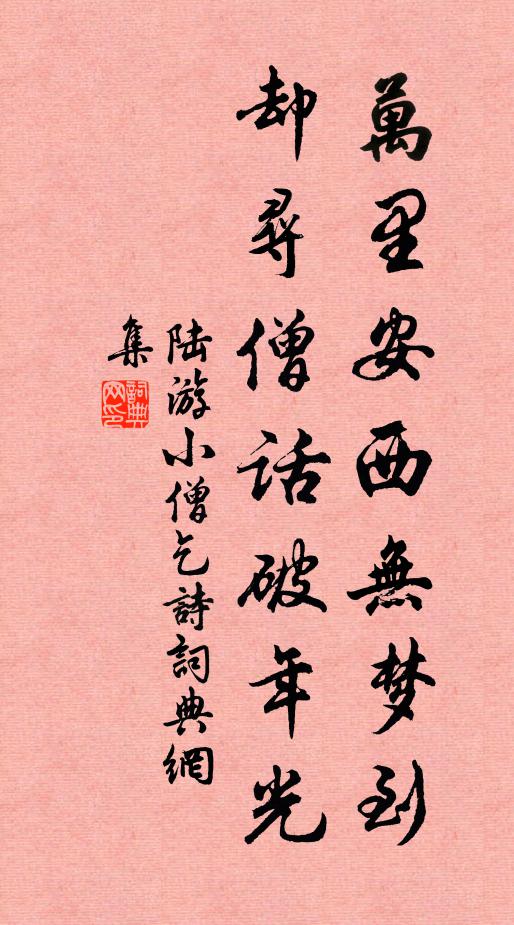 萬里安西無梦到
却尋僧話破年光
陆游小僧乞詩詞典網
集
詞典
网印